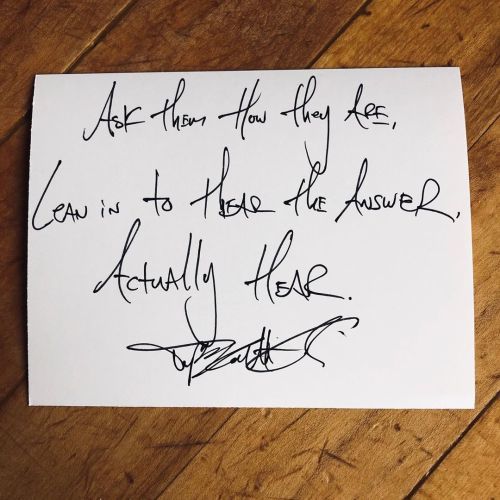 Ask them How they ARE,
Lean in to HEAR the Answer,
Actually HEAR.